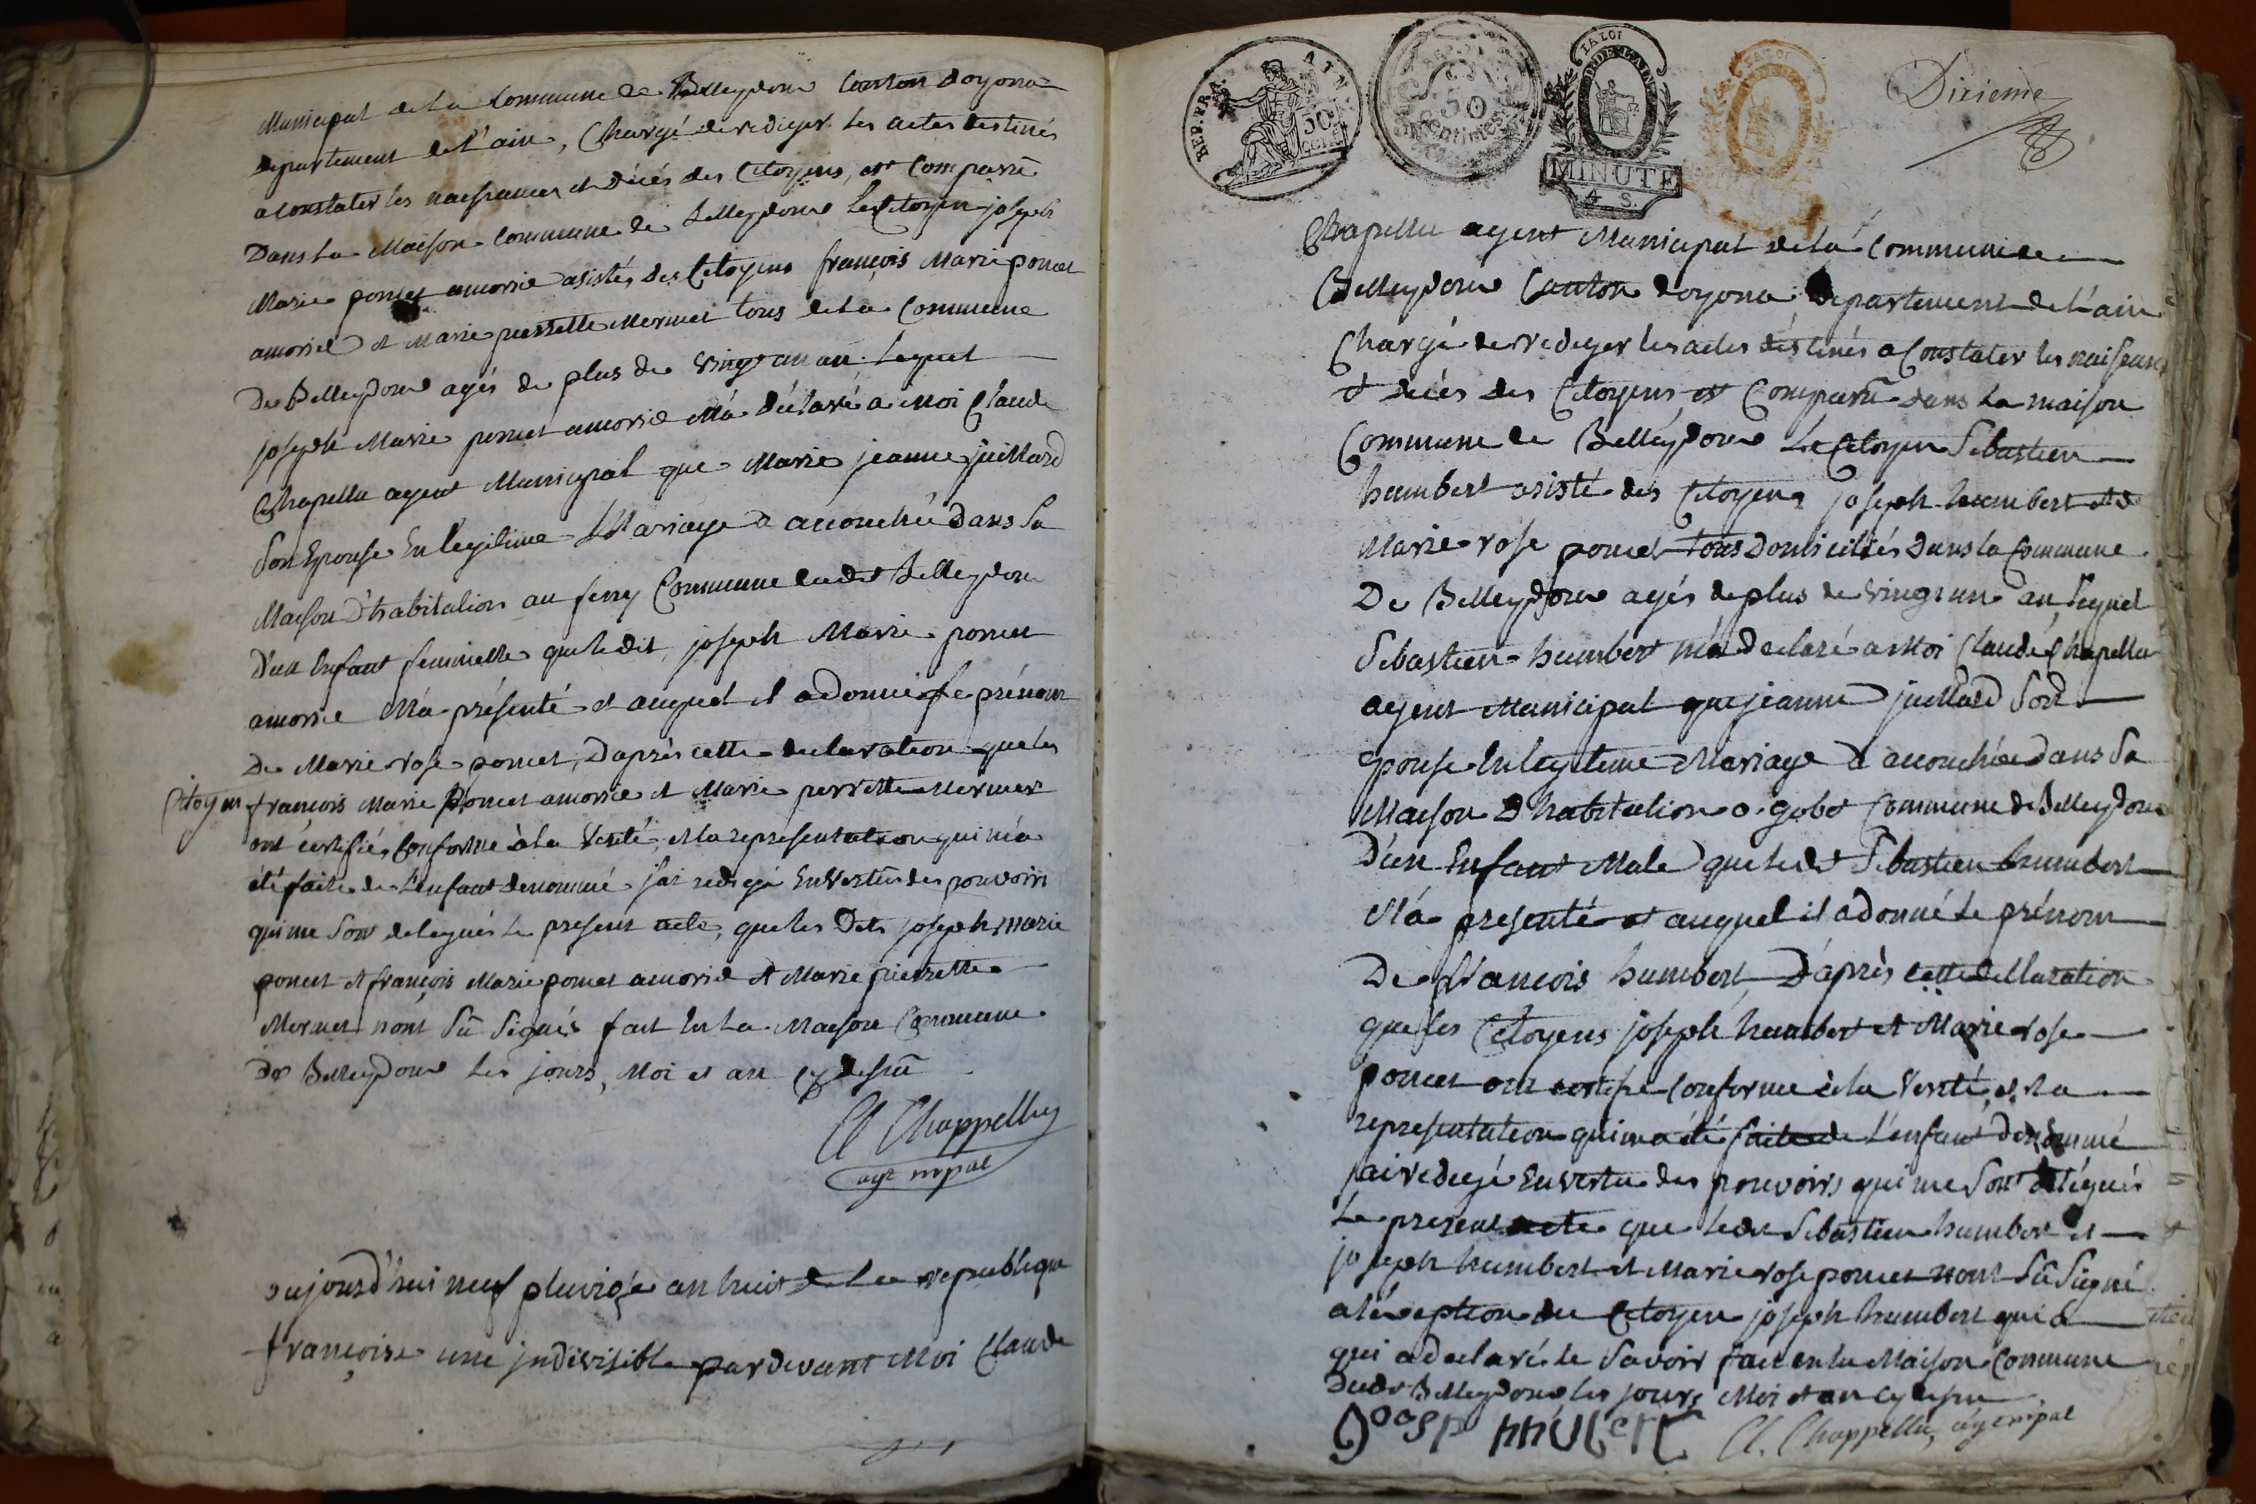 Municipal de La Commune de Belleydoux Canton doyona
departement de l'ain, Chargé de rediger Les actes destinés
a Constater les naissances et décés des Citoyens, est Comparu
Dans La Maison Commune de Belleydoux Le Citoyen joseph
Marie poncet amorié asistés des Citoyens françois Marie poncet
amorié et Marie pierrette Mermet tous de La Commune
De Belleydoux agés de plus de vingt un an. Lequel
joseph Marie poncet amorié M'a déclaré a Moi Claude
Chapellu agent Municipal que Marie jeanne juillard
Son Epouse En legitime Mariage a accouchée Dans Sa
Maison D'habitation au ferry Commune dudit Belleydoux
D'un Enfant feminelle que ledit joseph Marie poncet
amorié M'a présenté et auquel il a donné le prénom
De Marie rose poncet, D'après cette declaration que les
Citoyens françois Marie poncet amorié et Marie perrette Mermet
ont certifié Conforme à la Verité Ma représentation qui m'a
été faite de L'enfant denommé j'ai redigé En Vertu des pouvoirs
qui me Sont delegués Le present acte, que les Dits joseph marie
poncet et françois Marie poncet amorié et Marie pierrette
Mermet n'ont Sû Signés fait En La Maison Commune
De Belleydoux Les jours, Moi et an cy dessû
Cl Chappellu
agt mpal
aujourd'hui neuf pluviose an huit de La republique
françoise une jndivisible pardevant Moi Claude
REP. FRA.
50
CENT.
50
Centimes
LA LOI
MINUTE
4 S.
LA LOI
Dixieme
Chapellu agent Municipal de La Commune de
Belleydoux Canton doyona departement de L'ain
Chargé de rediger les actes destinés a Constater les naissances
et decés des Citoyens est Comparu dans La maison
Commune de Belleydoux Le Citoyen Sebastien
humbert asisté des Citoyens joseph humbert et
Marie rose poncet tous Domiciliés Dans la Commune
De Belleydoux agés de plus de vingt un an, Lequel
Sebastien humbert m'a declaré a Moi Claude Chapellu
agent Municipal que jeanne juillard Son
Epouse En legitime Mariage a accouchée dans Sa
Maison D'habitation o gobet Commune de Belleydoux
D'un Enfant Male que ledit Sebastien humbert
M'a presenté et auquel il a donné le prénom
De françois humbert D'après cette declaration
que les Citoyens joseph humbert et Marie rose
poncet ont certifié Conforme à la Verité, et La
representation qui m'a été faite de L'enfant denommé
j'ai redigé En Vertu des pouvoirs qui me Sont délégués
Le present acte que ledit Sebastien humbert et
joseph humbert et Marie rose poncet n'ont Sû Signé
a l'éxeption du Citoyen joseph humbert qui a
qui a declaré le Savoir fait en la Maison Commune
Dudit Belleydoux les jours, Moi et an cy dessu
Cl. Chappellu, agt mpal